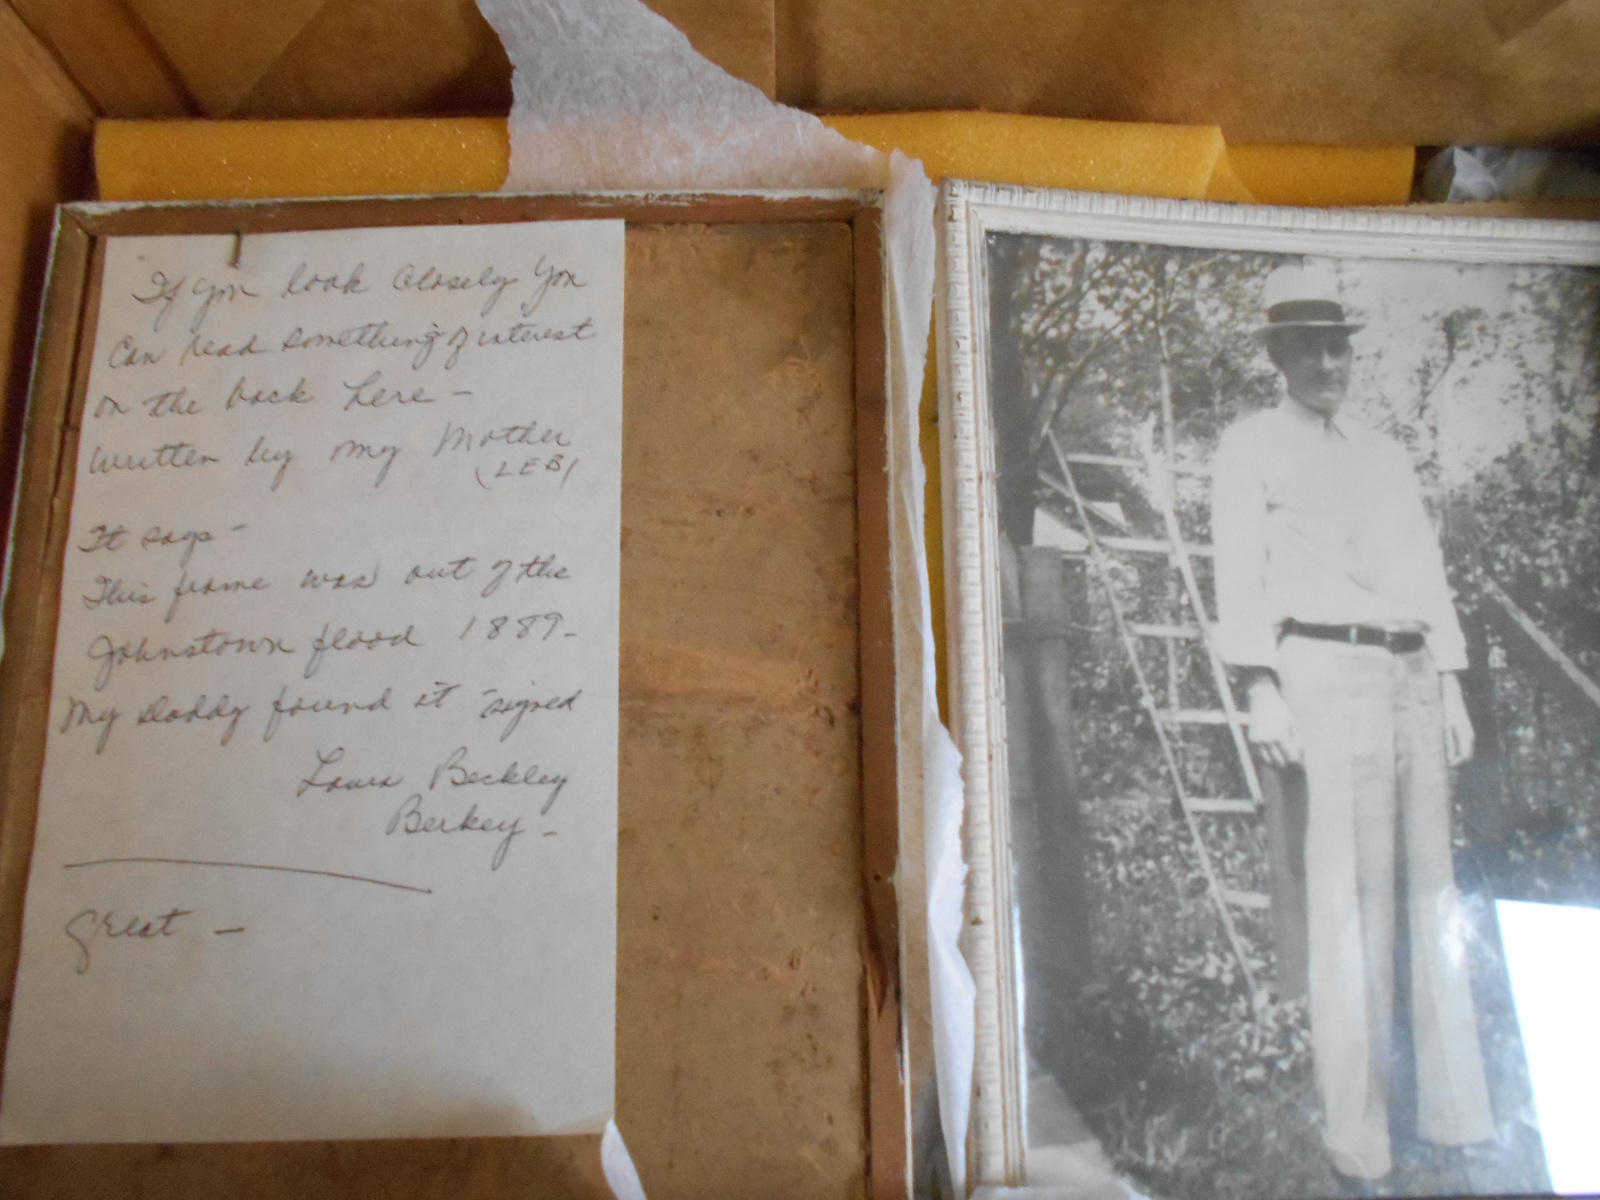 If you look closely you
can read something of interest
on the back here -
written by my Mother
(LEB)
It says -
This frame was out of the
Johnstown flood 1889 -
My Daddy found it signed
Laura Beckley
Berkey -
Great -